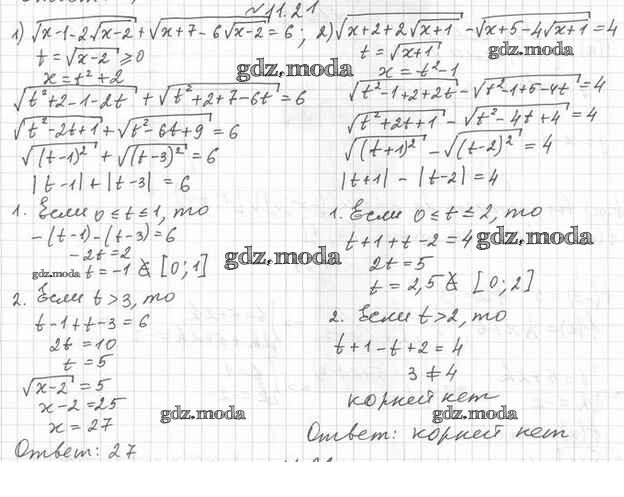 №11.21
1) √(x-1-2√(x-2)) + √(x+7-6√(x-2)) = 6;
t = √(x-2) ≥ 0
x = t² + 2
√(t²+2-1-2t) + √(t²+2+7-6t) = 6
√(t²-2t+1) + √(t²-6t+9) = 6
√((t-1)²) + √((t-3)²) = 6
|t-1| + |t-3| = 6
1. Если 0 ≤ t ≤ 1, то
-(t-1)-(t-3)=6
-2t=2
t = -1 ∉ [0;1]
2. Если t > 3, то
t-1+t-3=6
2t = 10
t = 5
√(x-2) = 5
x-2 = 25
x = 27
Ответ: 27
2) √(x+2+2√(x+1)) - √(x+5-4√(x+1)) = 4
t = √(x+1)
x = t²-1
√(t²-1+2+2t) - √(t²-1+5-4t) = 4
√(t²+2t+1) - √(t²-4t+4) = 4
√((t+1)²) - √((t-2)²) = 4
|t+1| - |t-2| = 4
1. Если 0 ≤ t ≤ 2, то
t+1+t-2=4
2t = 5
t = 2,5 ∉ [0;2]
2. Если t > 2, то
t+1-t+2=4
3 ≠ 4
корней нет
Ответ: корней нет
gdz.moda
gdz.moda
gdz.moda
gdz.moda
gdz.moda
gdz.moda
gdz.moda